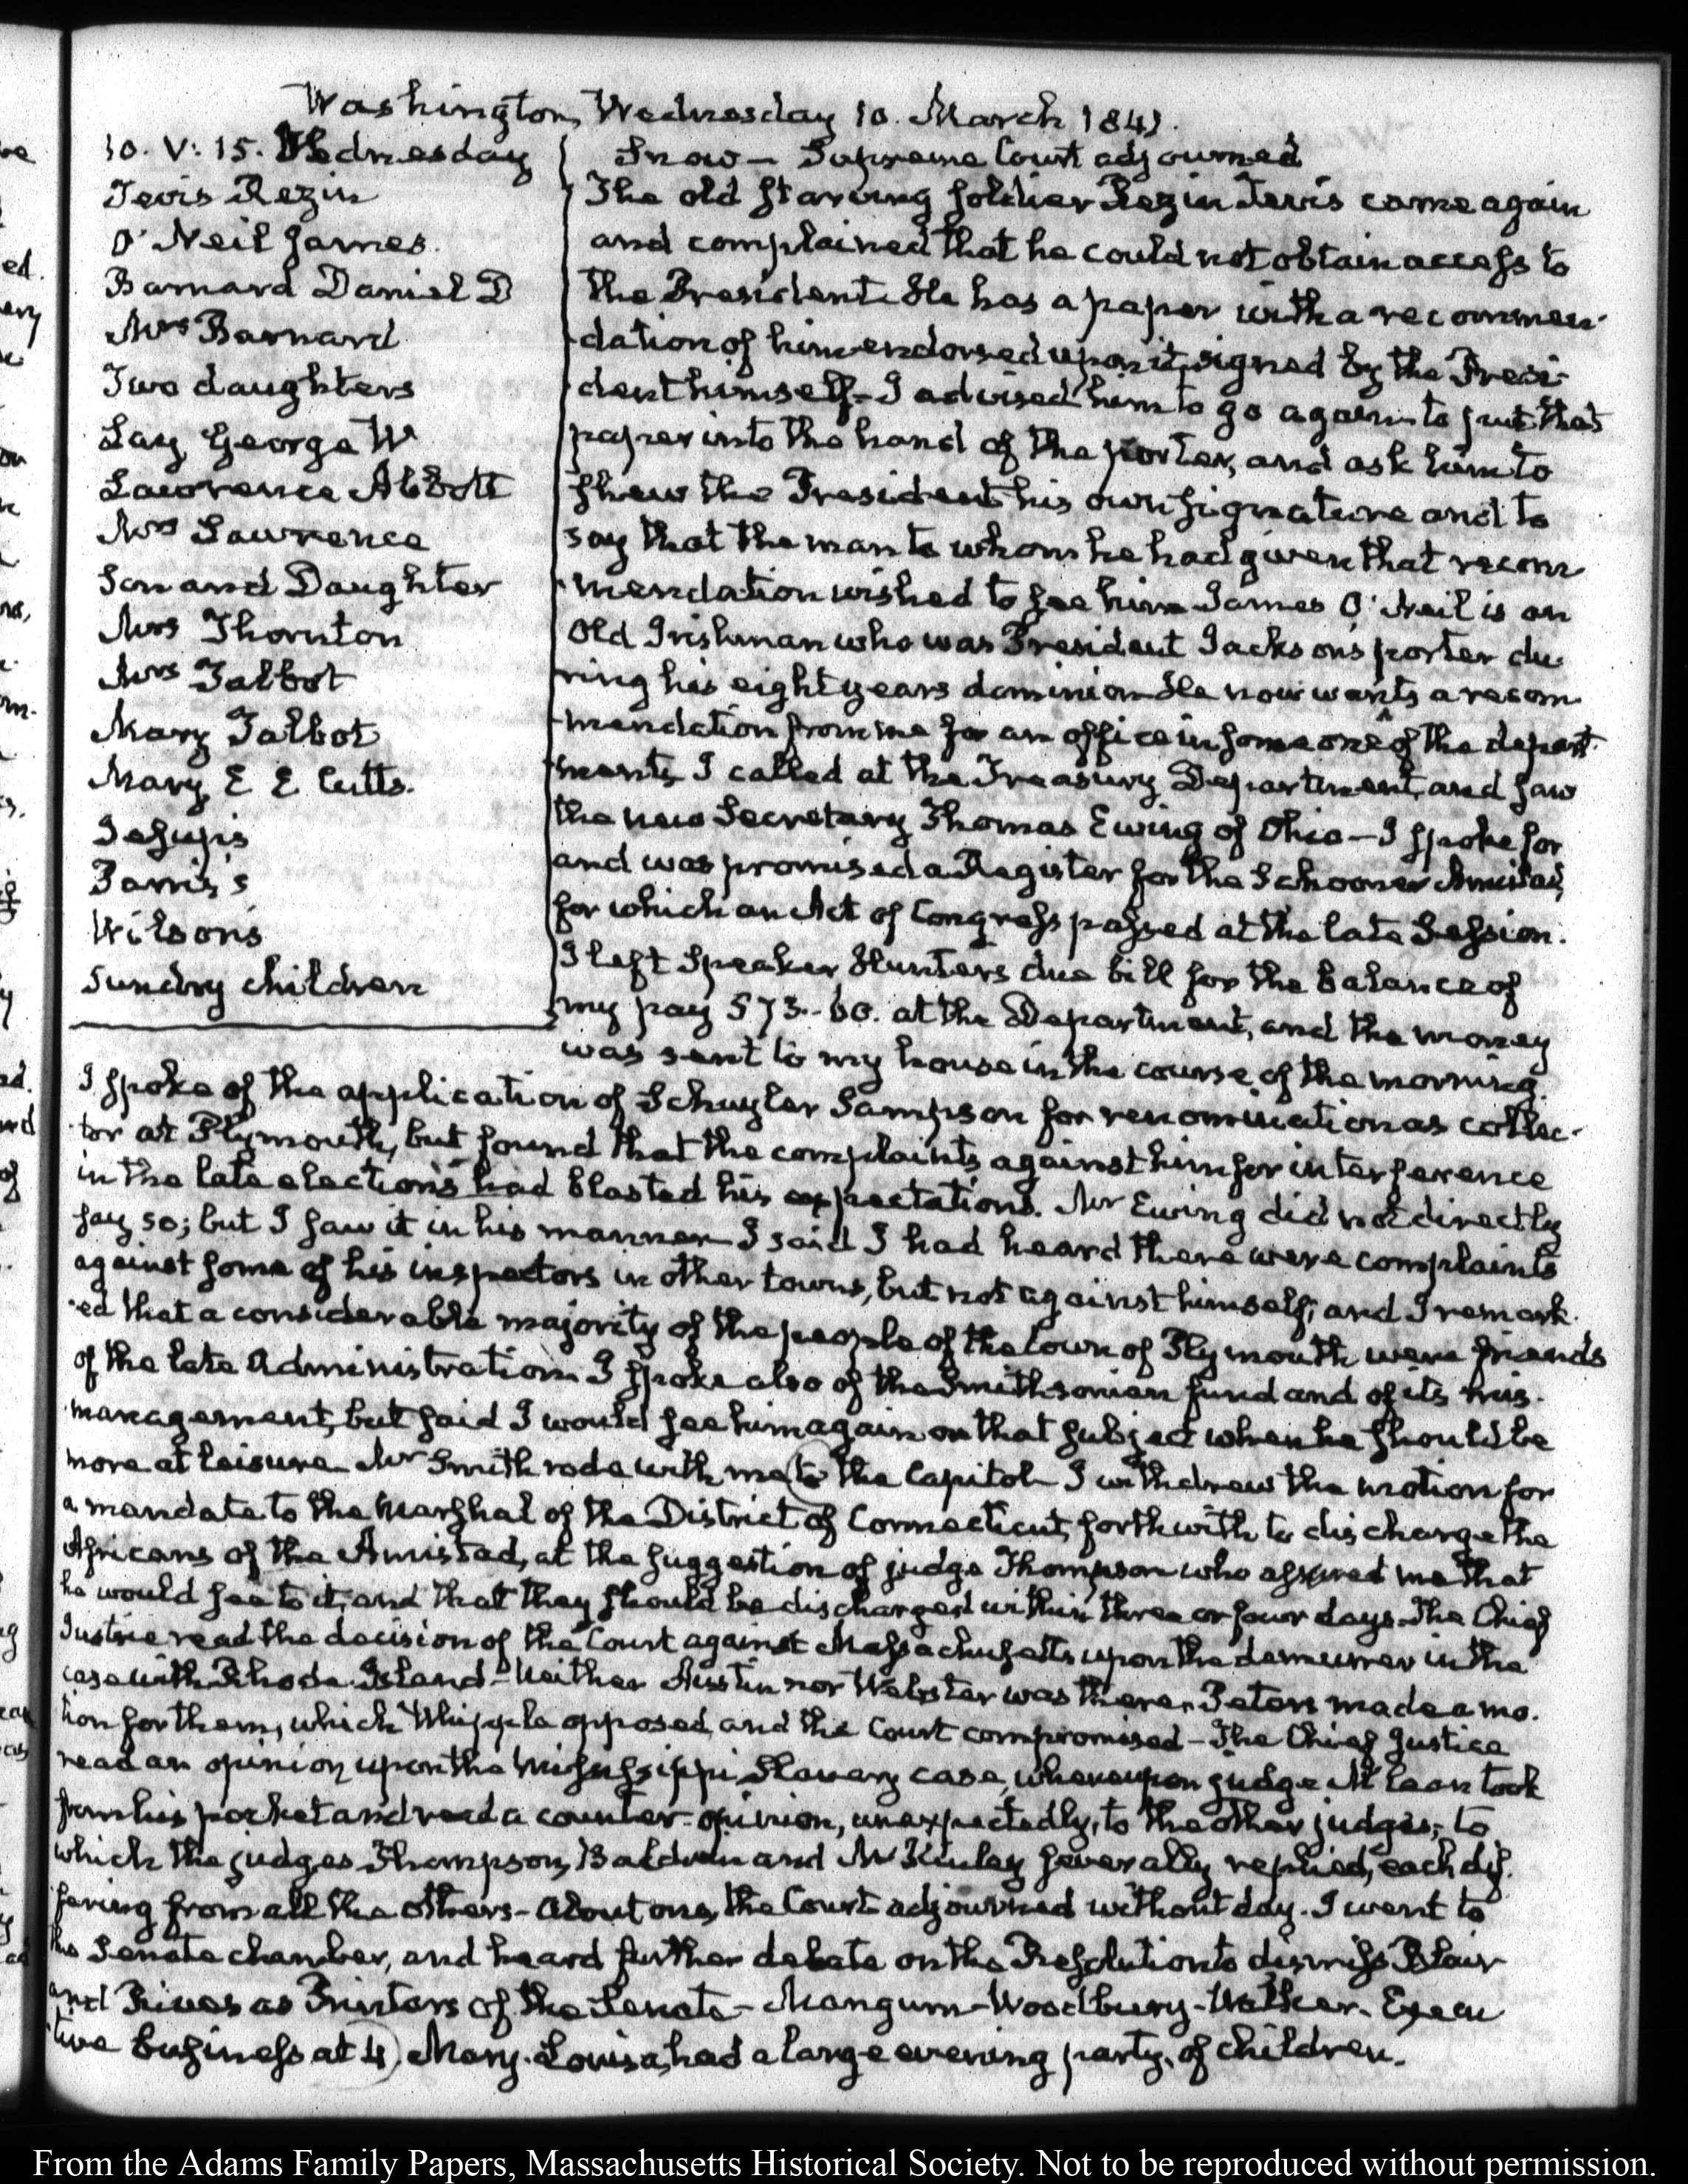 Washington, Wednesday 10. March 1841.
10. V: 15. Wednesday
Tevis Rezin
O'Neil James.
Barnard Daniel D
Mrs Barnard
Two daughters
Lay George W
Lawrence Abbott
Mrs Lawrence
Son and Daughter
Mrs Thornton
Mrs Talbot
Mary Talbot
Mary E E Cutts.
Jesup's
Wilson's
Sundry children
Snow — Supreme Court adjourned
The old starving soldier Rezin Tevis came again
and complained that he could not obtain access to
the President. He has a paper with a recommen-
dation of him endorsed upon it, signed by the Presi-
dent himself – I advised him to go again – to put that
paper into the hand of the porter, and ask him to
shew the President his own signature and to
say that the man to whom he had given that recom
mendation wished to see him. James O'Neil is an
old Irishman who was President Jackson's porter du-
ring his eight years dominion. He now wants a recom-
mendation from me for an office in some one of the depart-
ments, I called at the Treasury Department, and saw
the new Secretary Thomas Ewing of Ohio — I spoke for
and was promised a Register for the Schooner Amistad,
for which an Act of Congress passed at the late Session.
I left Speaker Hunter's due bill for the balance of
my pay 573..60. at the Department, and the money
was sent to my house in the course of the morning.
I spoke of the application of Schuyler Sampson for renomination as collec-
tor at Plymouth, but found that the complaints against him for interference
in the late elections had blasted his expectations. Mr Ewing did not directly
say so; but I saw it in his manner – I said I had heard there were complaints
against some of his inspectors in other towns, but not against himself; and I remark-
ed that a considerable majority of the people of the town of Plymouth were friends
of the late Administration. I spoke also of the Smithsonian fund and of its mis-
management, but said I would see him again on that subject when he should be
more at leisure. Mr Smith rode with me to the Capitol – I withdrew the motion for
a mandate to the Marshal of the District of Connecticut, forthwith to discharge the
Africans of the Amistad, at the suggestion of judge Thompson who assured me that
he would see to it, and that they should be discharged within three or four days. The Chief
Justice read the decision of the Court against Massachusetts upon the demurrer in the
case with Rhode-Island – Neither Austin nor Webster was there. Peters made a mo-
tion for them, which Whipple opposed, and the Court compromised – The Chief Justice
read an opinion upon the Mississippi Slavery case, whereupon judge McLean took
from his pocket and read a counter-opinion, unexpectedly, to the other judges; to
which the judges Thompson, Baldwin and McKinley severally replied, each dif-
fering from all the others – About one, the Court adjourned without day. I went to
the Senate chamber, and heard further debate on the Resolution to dismiss Blair
and Rives as Printers of the Senate – Mangum – Woodbury – Walker. Execu
tive business at 4. Mary-Louisa, had a large evening party, of children.
From the Adams Family Papers, Massachusetts Historical Society. Not to be reproduced without permission.